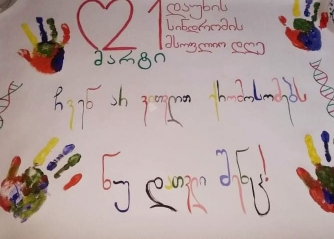 21 დაუნის
სინდრომის
მსოფლიო დღე
მარტი
ჩვენ არ ვითვლით ქრომოსომებს
ნუ დათვლი შენც!